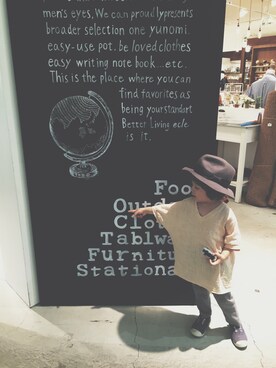 men's eyes, We can proudly presents
broader selection one yunomi.
easy-use pot. be loved clothes
easy writing note book...etc..
This is the place where you can
find favorites as
being your standart
Better Living
it is.
Foo
Outd
Clot
Tablwa
Furnitu
Stationa